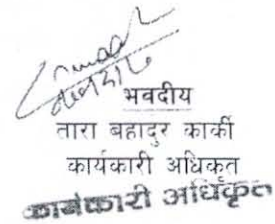 भवदीय
तारा बहादुर कार्की
कार्यकारी अधिकृत
कार्यकारी अधिकृत